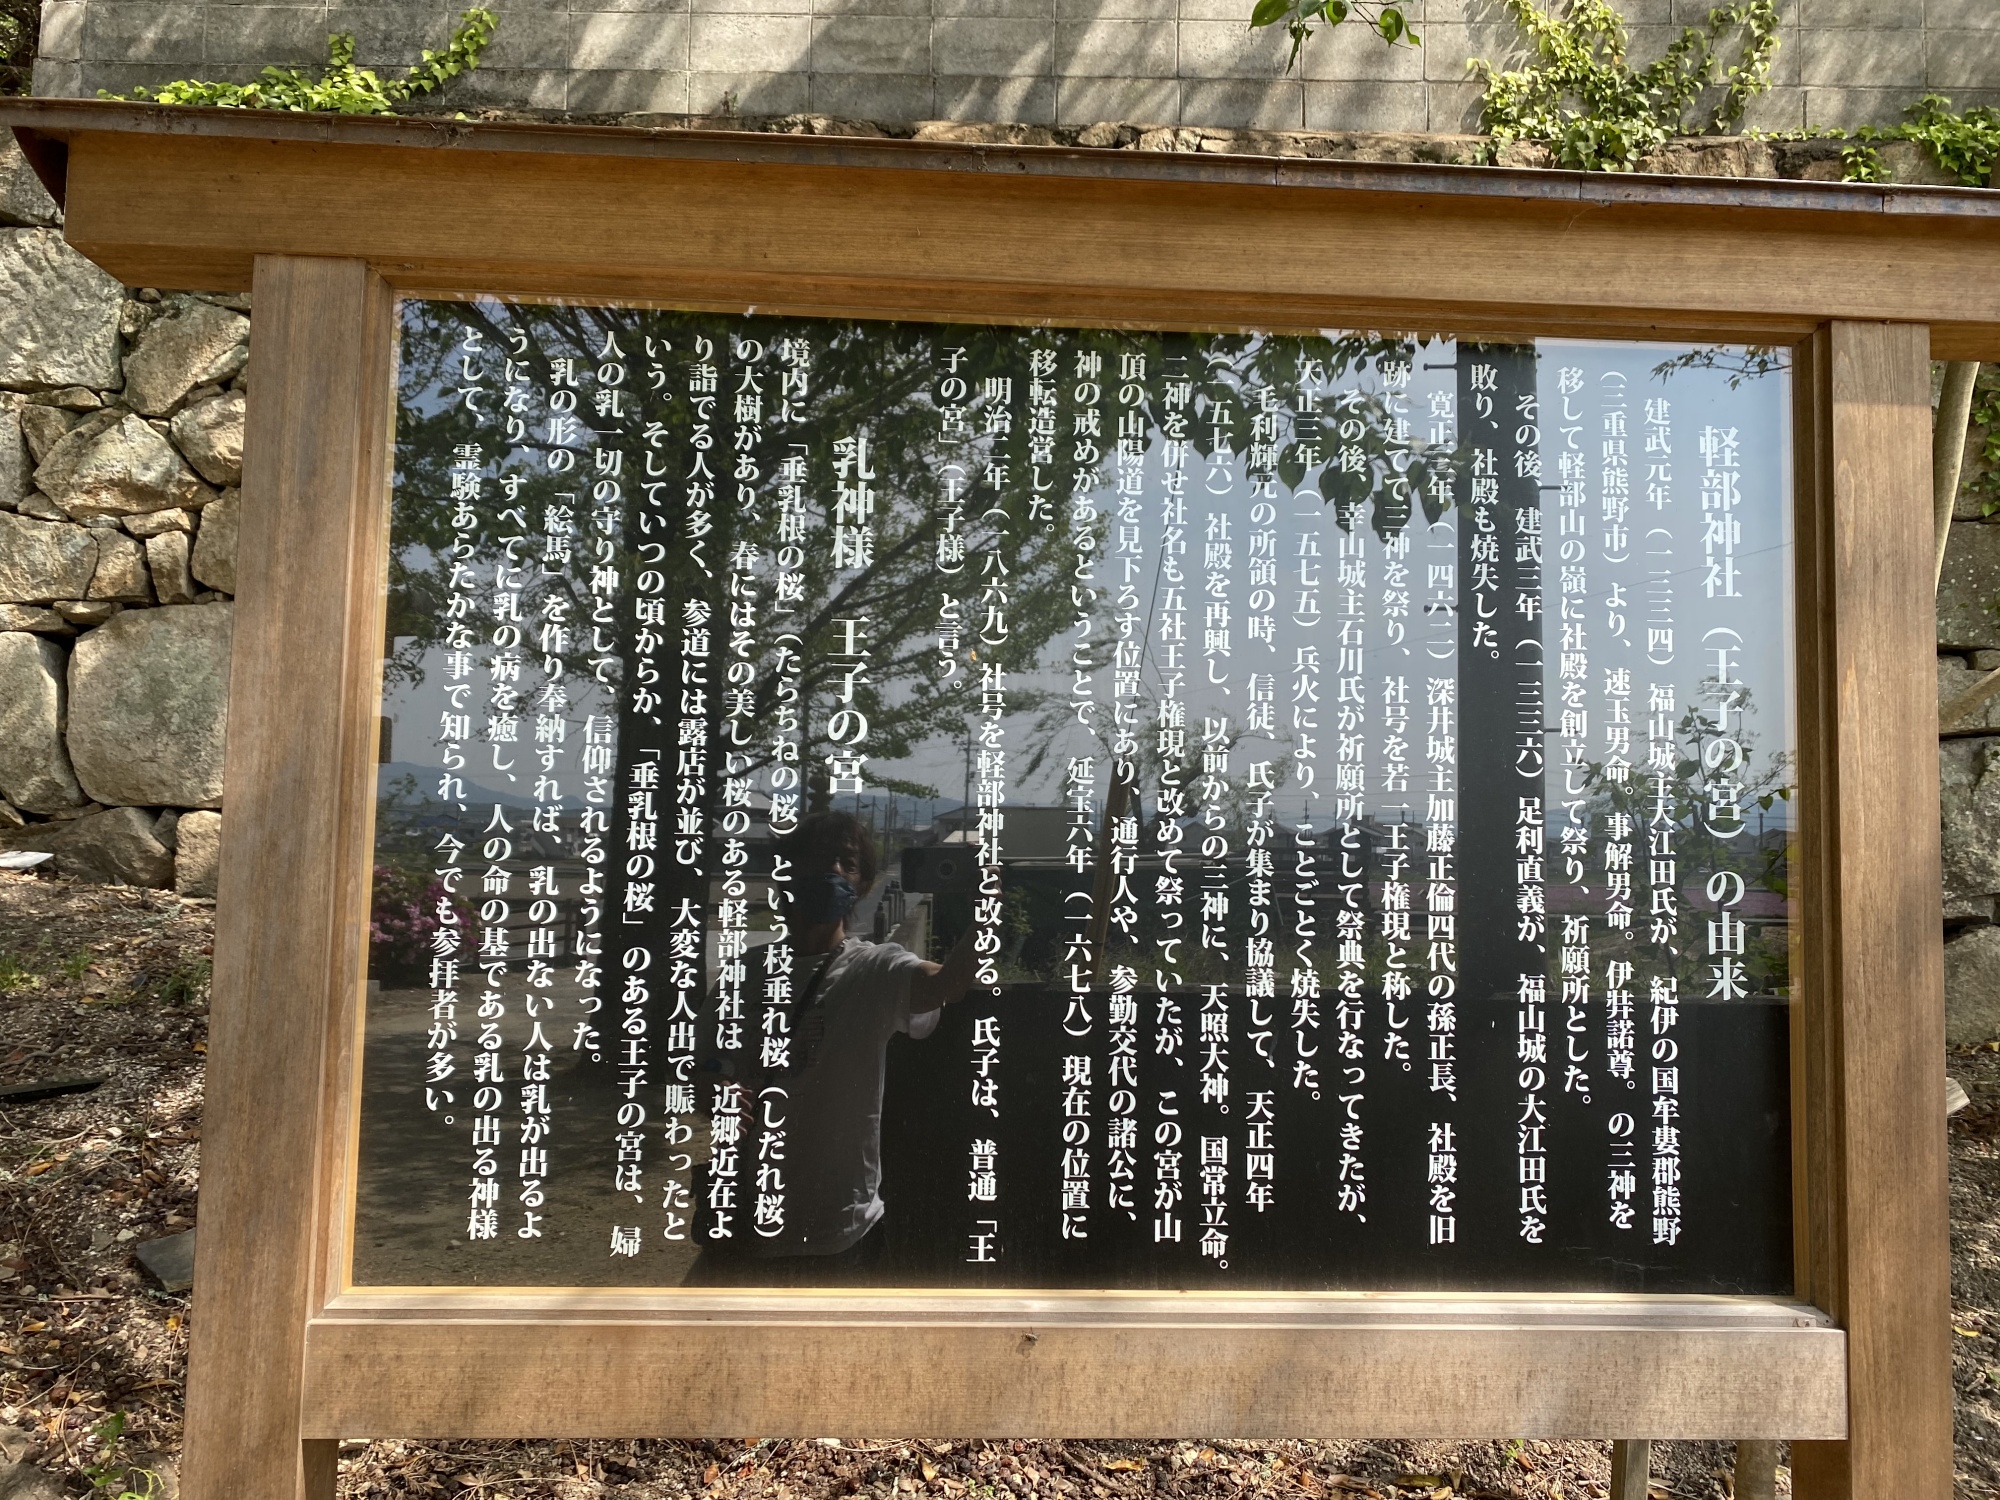 軽部神社（王子の宮）の由来
建武元年（一三三四）福山城主大江田氏が、紀伊の国牟婁郡熊野
（三重県熊野市）より、速玉男命。事解男命。伊弉諾尊。の三神を
移して軽部山の嶺に社殿を創立して祭り、祈願所とした。
その後、建武三年（一三三六）足利直義が、福山城の大江田氏を
敗り、社殿も焼失した。
寛正三年（一四六二）深井城主加藤正倫四代の孫正長、社殿を旧
跡に建てて三神を祭り、社号を若一王子権現と称した。
その後、幸山城主石川氏が祈願所として祭典を行なってきたが、
天正三年（一五七五）兵火により、ことごとく焼失した。
毛利輝元の所領の時、信徒、氏子が集まり協議して、天正四年
（一五七六）社殿を再興し、以前からの三神に、天照大神。国常立命。
二神を併せ社名も五社王子権現と改めて祭っていたが、この宮が山
頂の山陽道を見下ろす位置にあり、通行人や、参勤交代の諸公に、
神の戒めがあるということで、延宝六年（一六七八）現在の位置に
移転造営した。
明治二年（一八六九）社号を軽部神社と改める。氏子は、普通「王
子の宮」（王子様）と言う。
乳神様　王子の宮
境内に「垂乳根の桜」（たらちねの桜）という枝垂れ桜（しだれ桜）
の大樹があり、春にはその美しい桜のある軽部神社は　近郷近在よ
り詣でる人が多く、参道には露店が並び、大変な人出で賑わったと
いう。そしていつの頃からか、「垂乳根の桜」のある王子の宮は、婦
人の乳一切の守り神として、信仰されるようになった。
乳の形の「絵馬」を作り奉納すれば、乳の出ない人は乳が出るよ
うになり、すべてに乳の病を癒し、人の命の基である乳の出る神様
として、霊験あらたかな事で知られ、今でも参拝者が多い。